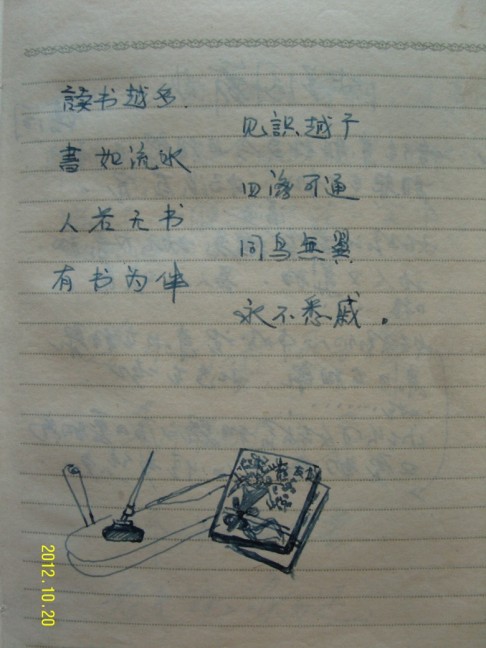 讀书越多.
见识越广
書如流水
四海可通
人若无书
同鸟無翼
有书为伴
永不愁戚.
2012.10.20